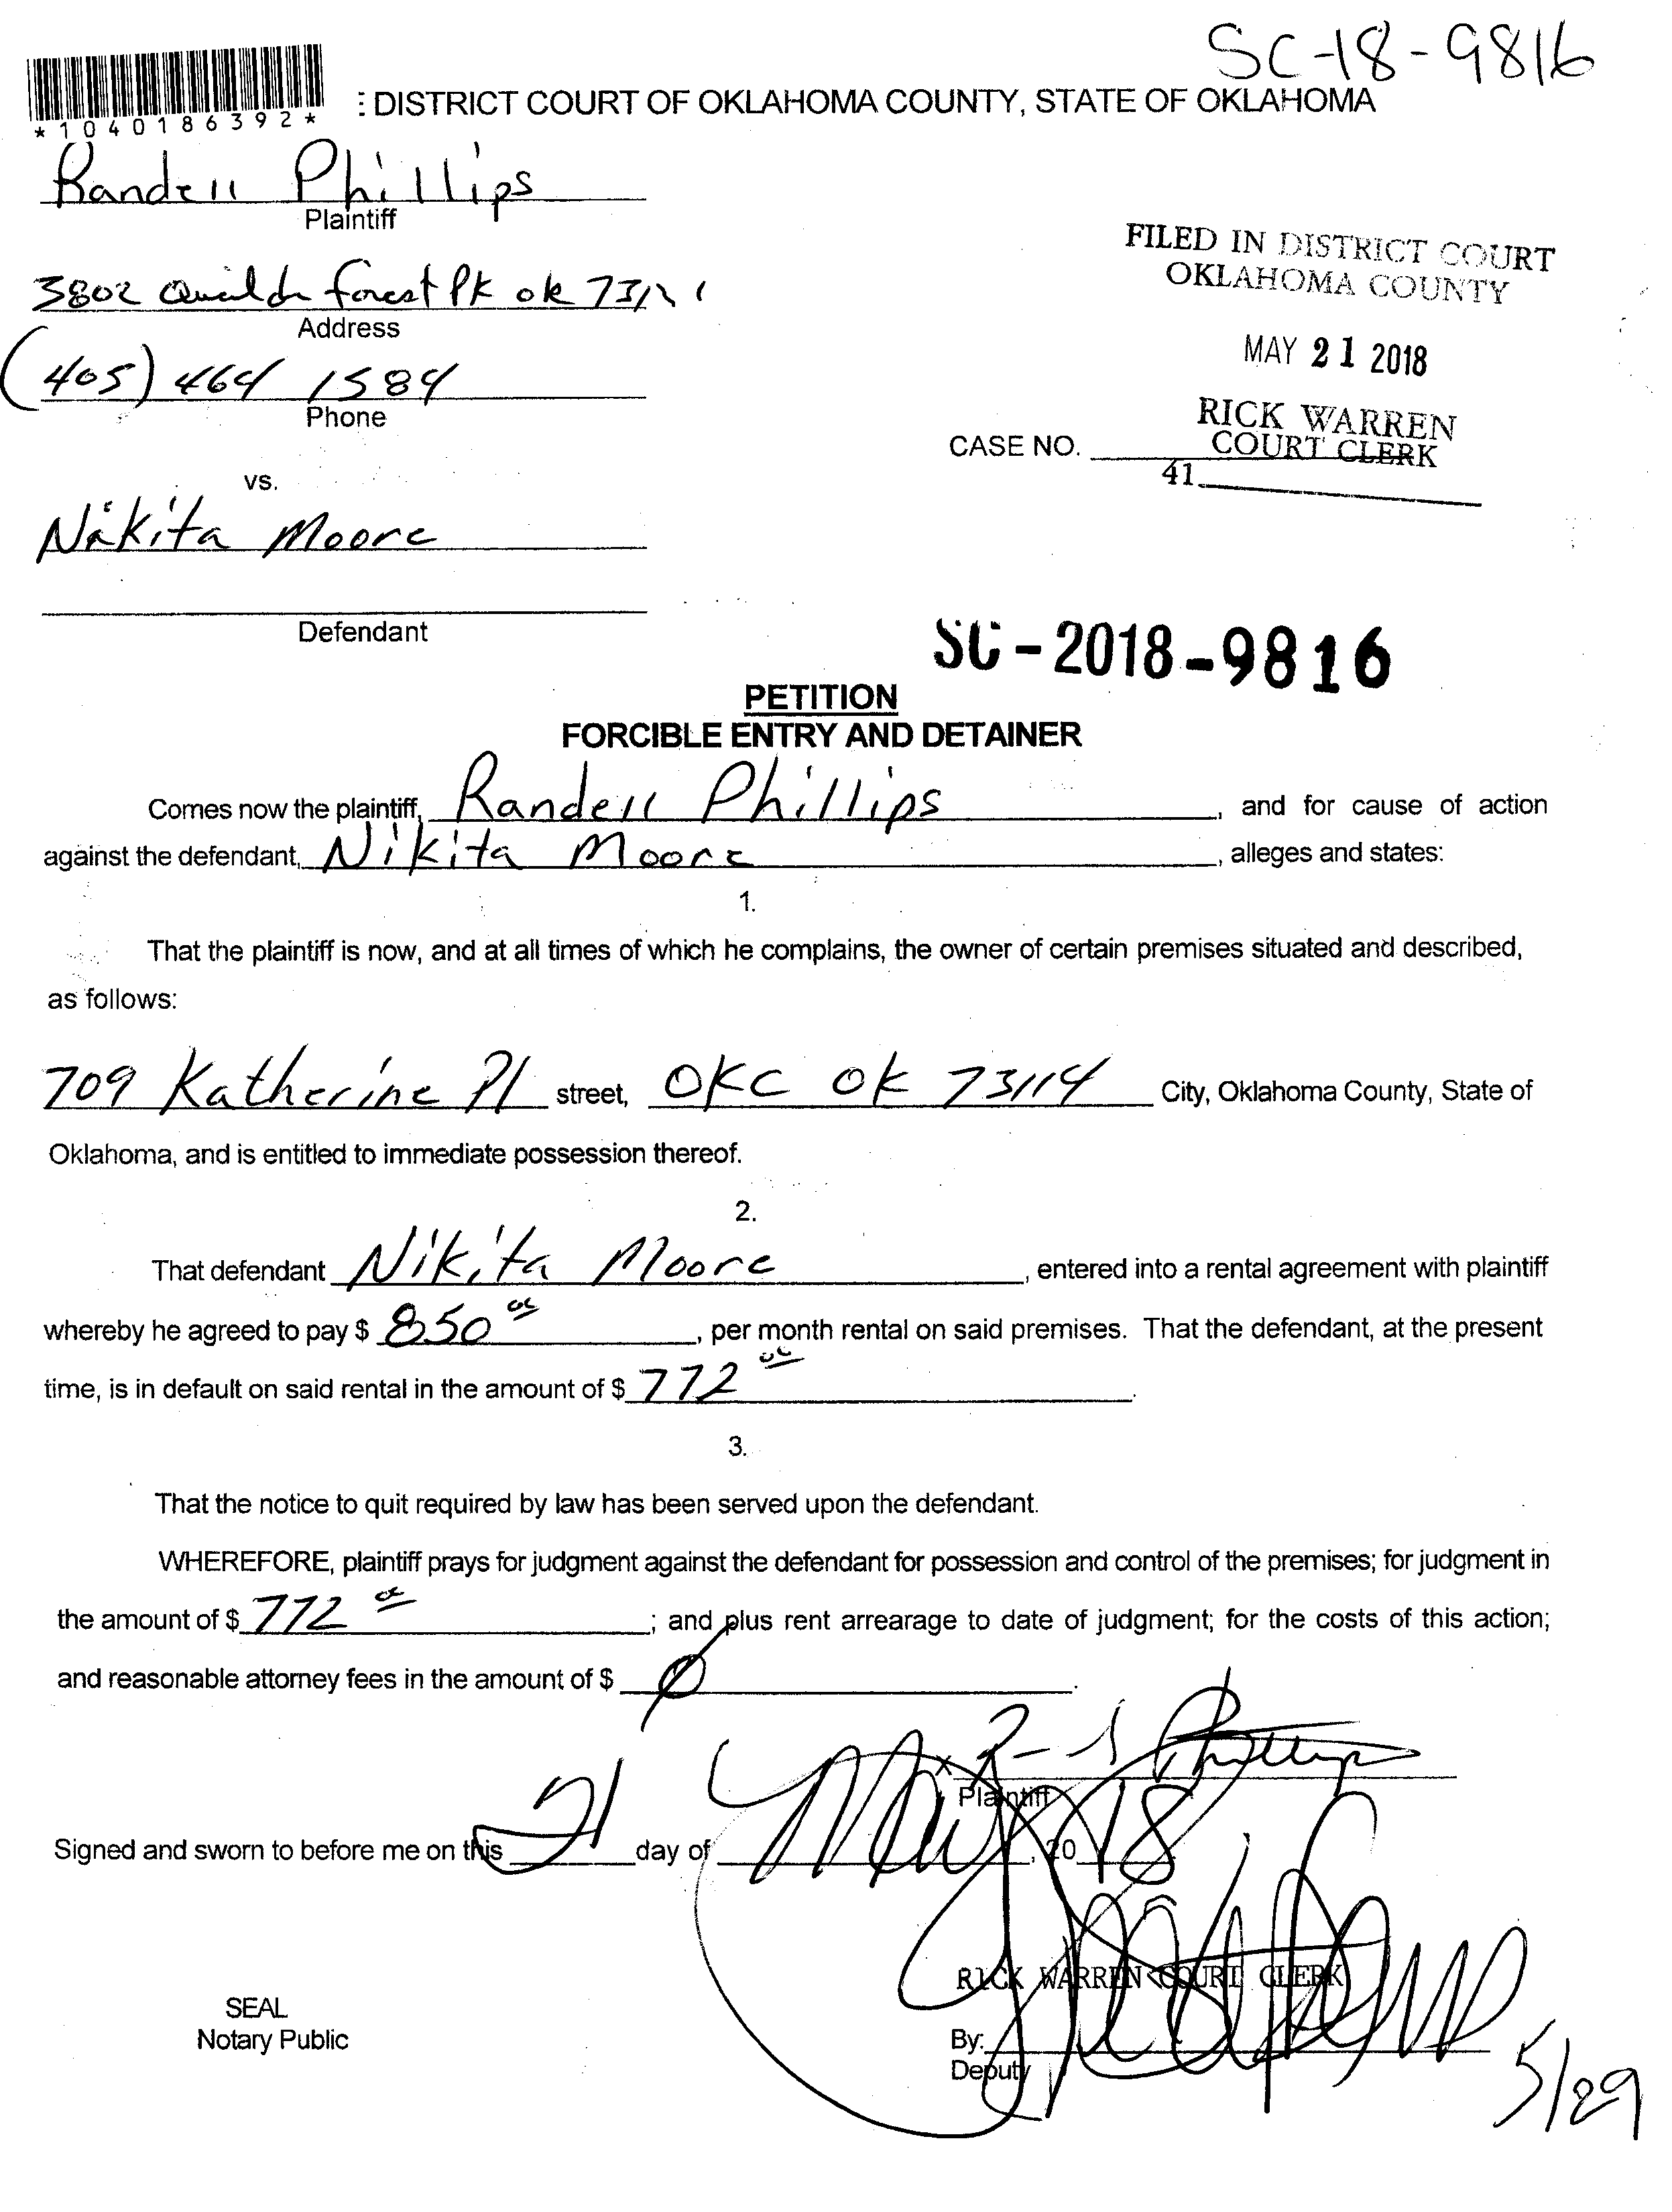 SC-18-9816
*1040186392*
: DISTRICT COURT OF OKLAHOMA COUNTY, STATE OF OKLAHOMA
Randell Phillips
Plaintiff
FILED IN DISTRICT COURT
OKLAHOMA COUNTY
3802 forest Pk ok
Address
MAY 21 2018
(405) 464 1584
Phone
RICK WARREN
COURT CLERK
CASE NO.
41
vs.
Nikita Moore
Defendant
SC-2018-9816
PETITION
FORCIBLE ENTRY AND DETAINER
Comes now the plaintiff, Randell Phillips, and for cause of action
against the defendant, Nikita Moore, alleges and states:
1.
That the plaintiff is now, and at all times of which he complains, the owner of certain premises situated and described,
as follows:
709 Katherine Pl street, OKC OK 73114 City, Oklahoma County, State of
Oklahoma, and is entitled to immediate possession thereof.
2.
That defendant Nikita Moore, entered into a rental agreement with plaintiff
whereby he agreed to pay $ 850 00, per month rental on said premises. That the defendant, at the present
time, is in default on said rental in the amount of $ 772 00.
3.
That the notice to quit required by law has been served upon the defendant.
WHEREFORE, plaintiff prays for judgment against the defendant for possession and control of the premises; for judgment in
the amount of $ 772 00; and plus rent arrearage to date of judgment; for the costs of this action;
and reasonable attorney fees in the amount of $ 0.
x R Phillips
Plaintiff
Signed and sworn to before me on this 21 day of May, 20 18
RICK WARREN COURT CLERK
SEAL
Notary Public
By:
Deputy
5/29